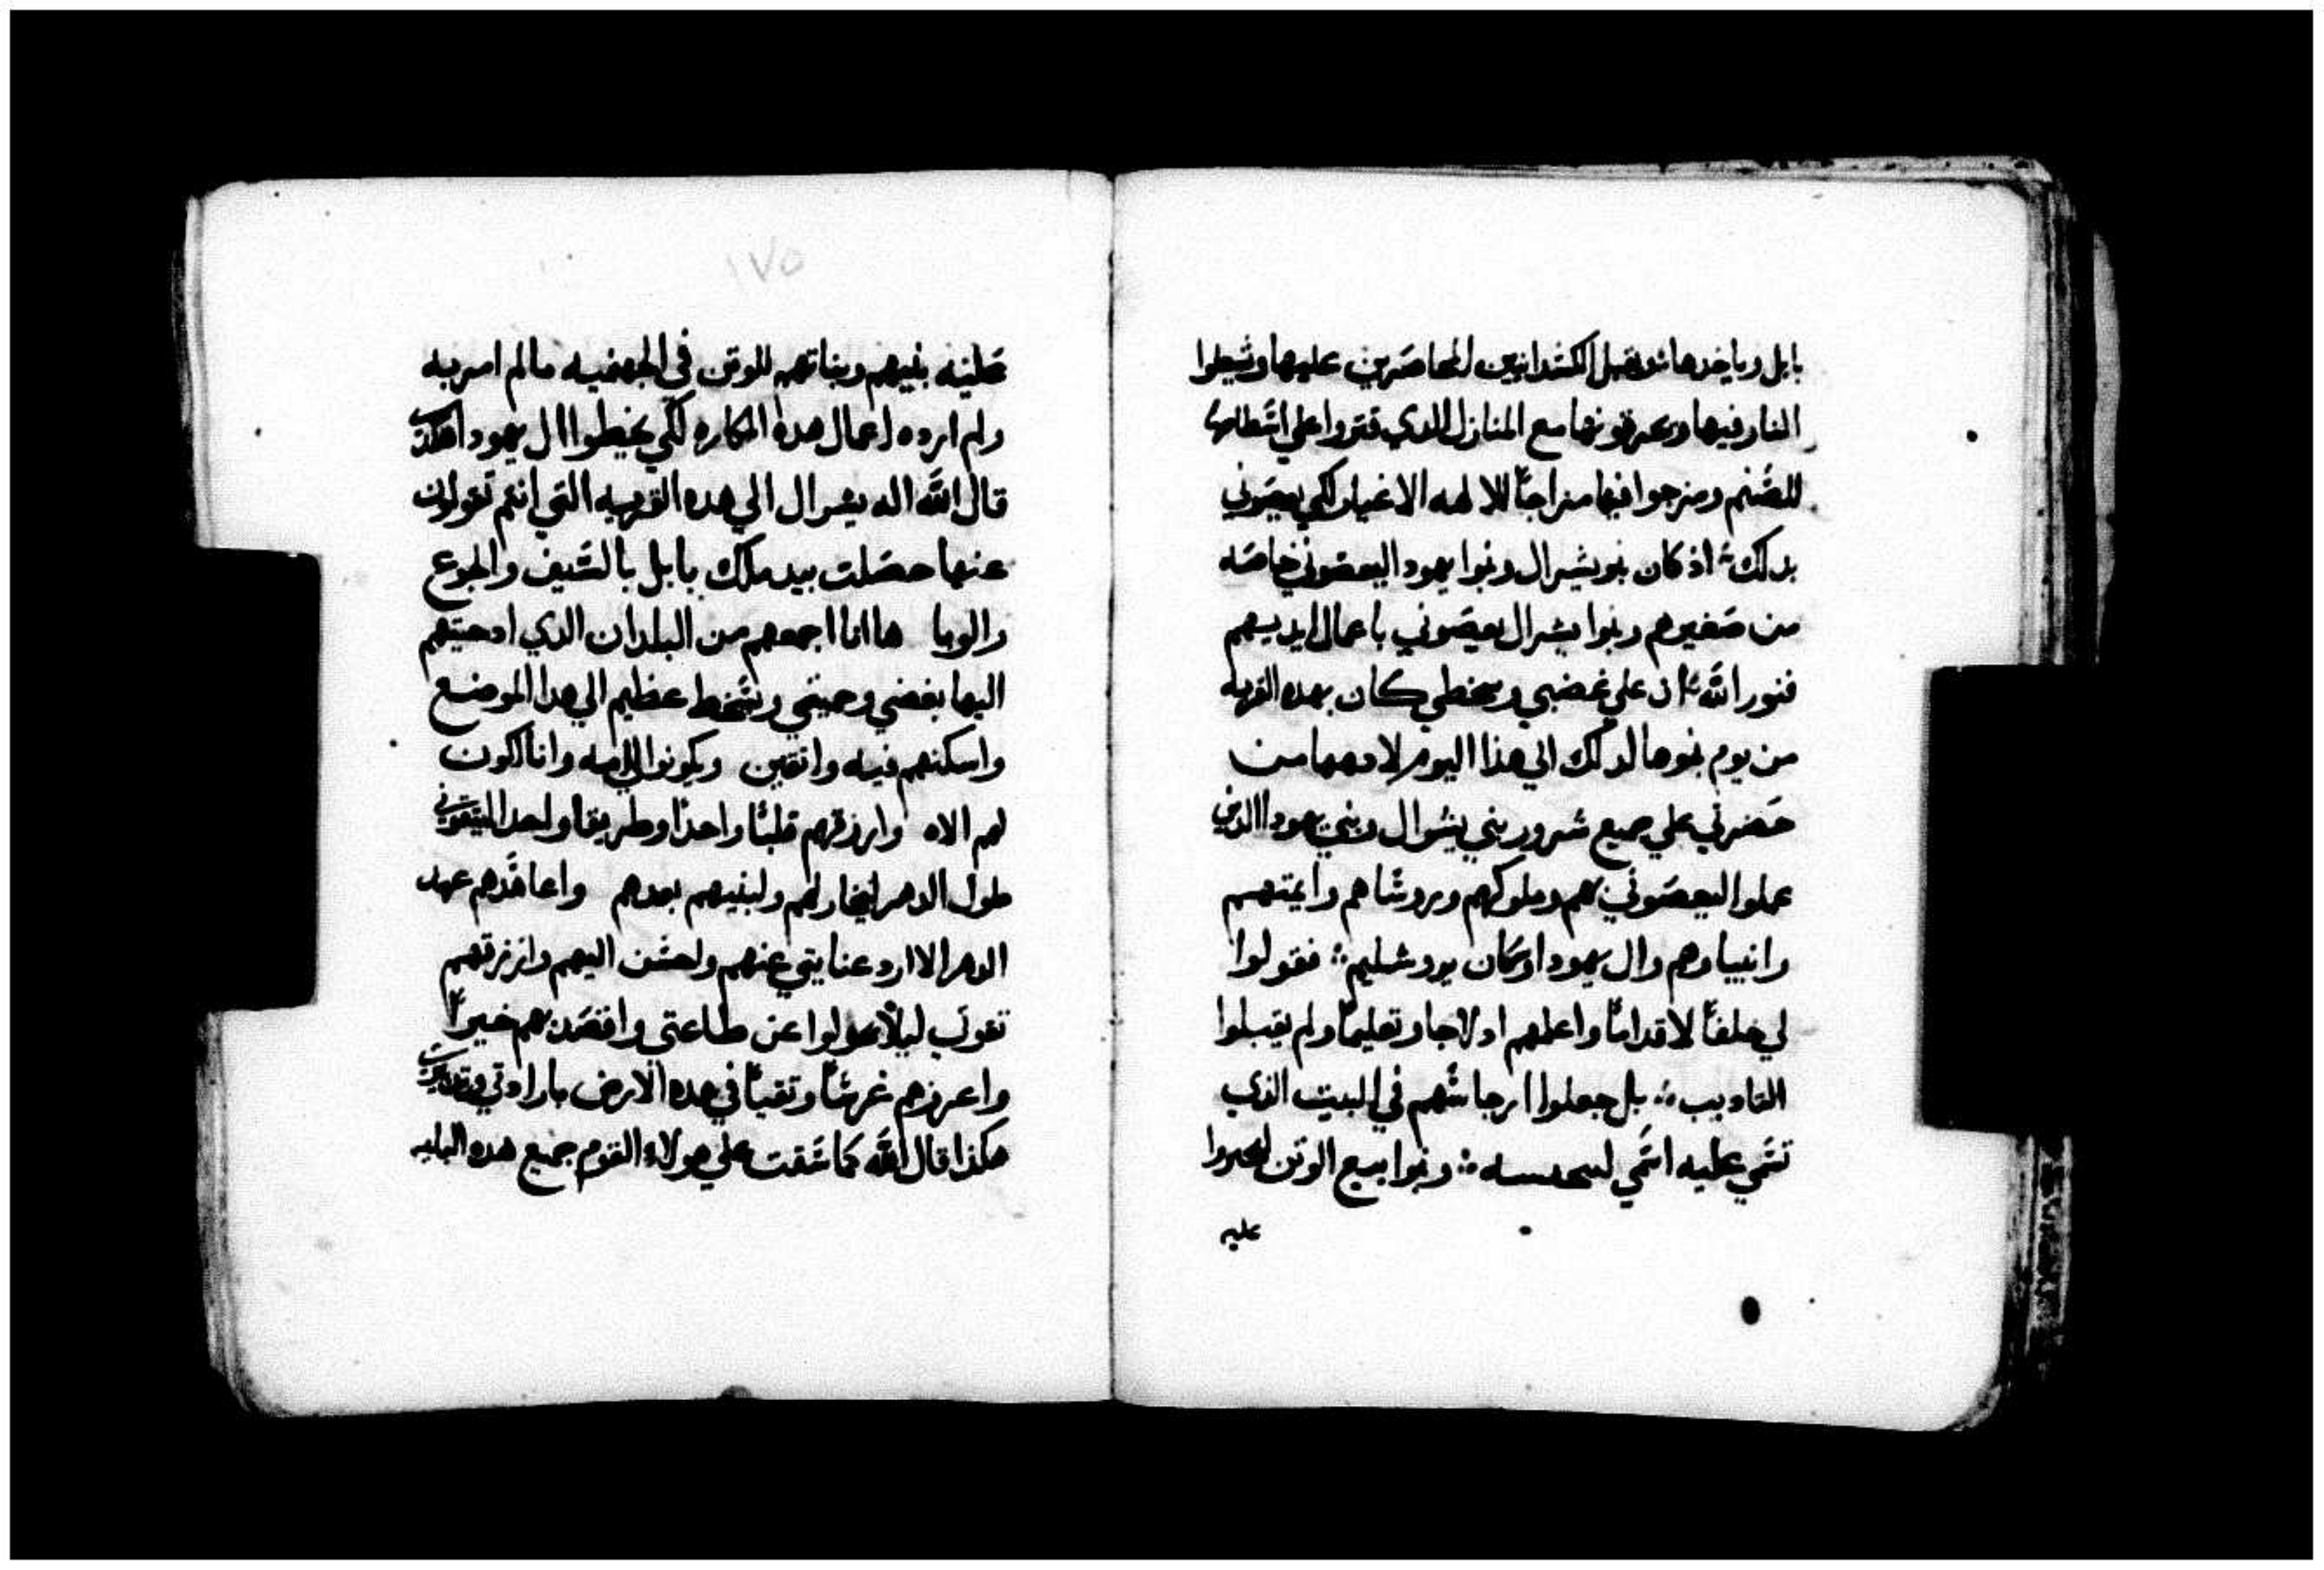 بابل وياخدها ثم تقبل الكشدانيين المحاصرين عليها ويشعلوا
النار فيها ويحرقونها مع المنازل الذي قتروا علي اسطاحها
للصنم ومزجوا فيها مزاجاً للالهه الاغيار لكي يعصوني
بذلك اذ كان بنو يشرال وبنوا يهودا ليعصوني خاصه
من صغيرهم وبنوا يشرال يعصوني باعمال ايديهم
فنور الله ان علي غضبي وسخطي كان بهده القريه
من يوم بنوها لدلك الي هذا اليوم لادهمها من
حضرتي علي جميع شرور بني يشرال وبني يهودا الذي
عملوا ليعصوني هم وملوكهم وروساهم وايمتهم
وانبياوهم وال يهودا وسكان يروشليم فقولوا
لي خلفاً لا قداماً واعلمهم ادلاجا وتعليماً ولم يقبلوا
التاديب بل جعلوا ارجاسهم في البيت الذي
تسمي عليه اسمي لينجسه وبنوا بيع الوتن
عليه
١٧٥
بنيهم وبناتهم للوتن في الجهنميه مالم امر به
ولم ارده اعمال هده المكاره لكي يخطوا ال يهودا هكذا
قال الله اله يشرال الي هده القريه التي انتم تقولون
عنها حصلت بيد ملك بابل بالسيف والجوع
والوبا ها انا اجمعهم من البلدان الدي ادحيتهم
اليها بغضبي وحميتي وسخط عظيم الي هدا الموضع
واسكنهم فيه واتقين ويكونوا لي امه وانا اكون
لهم الاه وارزقهم قلباً واحداً وطريقا واحدا ليتقوني
طول الدهر ليخار لهم ولبنيهم بعدهم واعاقدهم عهد
الدهر الا ارد عنايتي عنهم ولحسن اليهم وارزقهم
تقوي ليلا يحولوا عن طاعتي واقصدهم خيراً
واعرزهم غرساً وتقياً في هده الارض بارادتي
هكذا قال الله كما سقت علي هولاء القوم جميع هده البليه